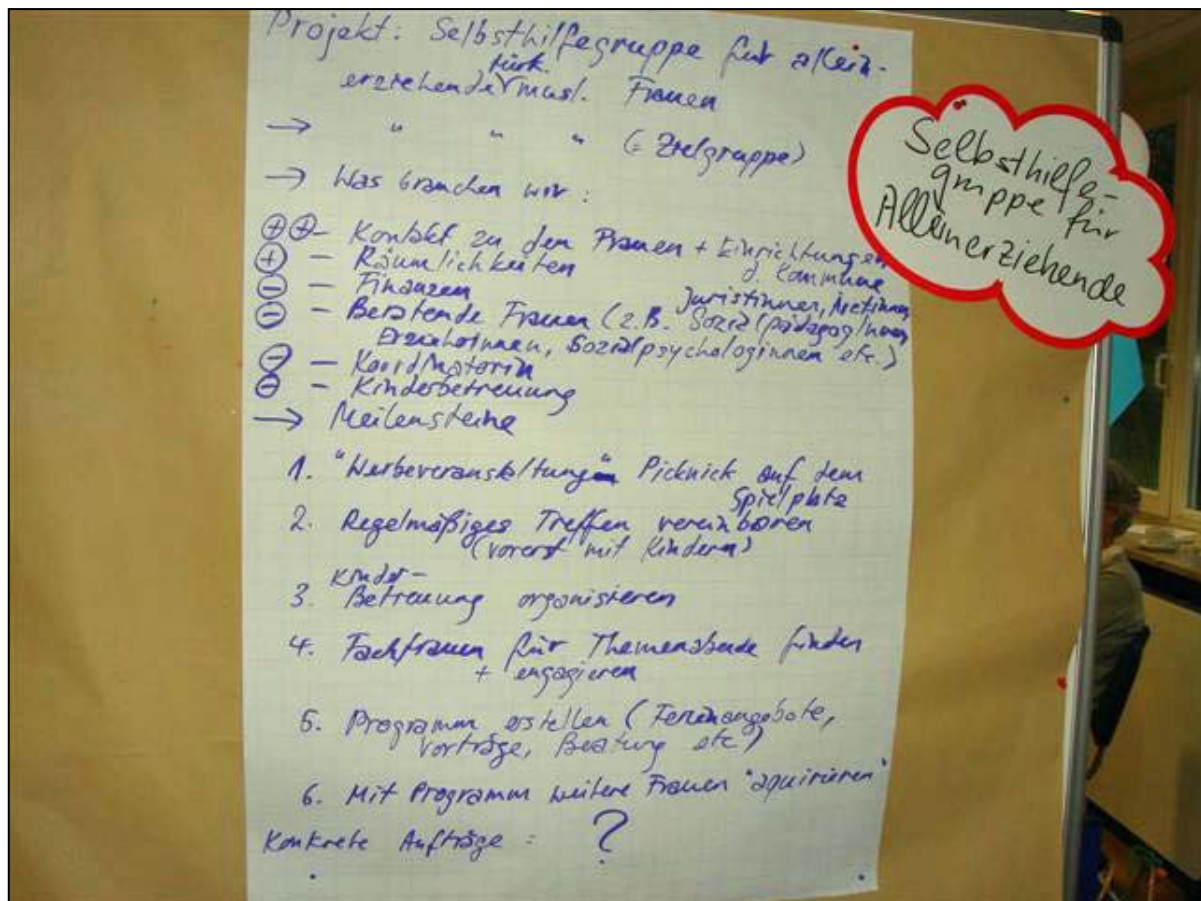 Projekt: Selbsthilfegruppe für allein-
türk.
erziehende musl. Frauen
→ " " " (= Zielgruppe)
→ Was brauchen wir:
⊕⊕ - Kontakt zu den Frauen + Einrichtungen
d. Kommune
⊕ - Räumlichkeiten
⊖ - Finanzen
Juristinnen, Ärztinnen
⊖ - Beratende Frauen (z.B. Sozialpädagoginnen
Erzieherinnen, Sozialpsychologinnen etc.)
⊖ - Koordinatorin
⊖ - Kinderbetreuung
→ Meilensteine
1. "Werbeveranstaltung" Picknick auf dem
Spielplatz
2. Regelmäßiges Treffen vereinbaren
(vorerst mit Kindern)
Kinder-
3. Betreuung organisieren
4. Fachfrauen für Themenabende finden
+ engagieren
5. Programm erstellen (Ferienangebote,
Vorträge, Beratung etc)
6. Mit Programm weitere Frauen "aquirieren"
Konkrete Aufträge: ?
Selbsthilfe-
gruppe für
Alleinerziehende